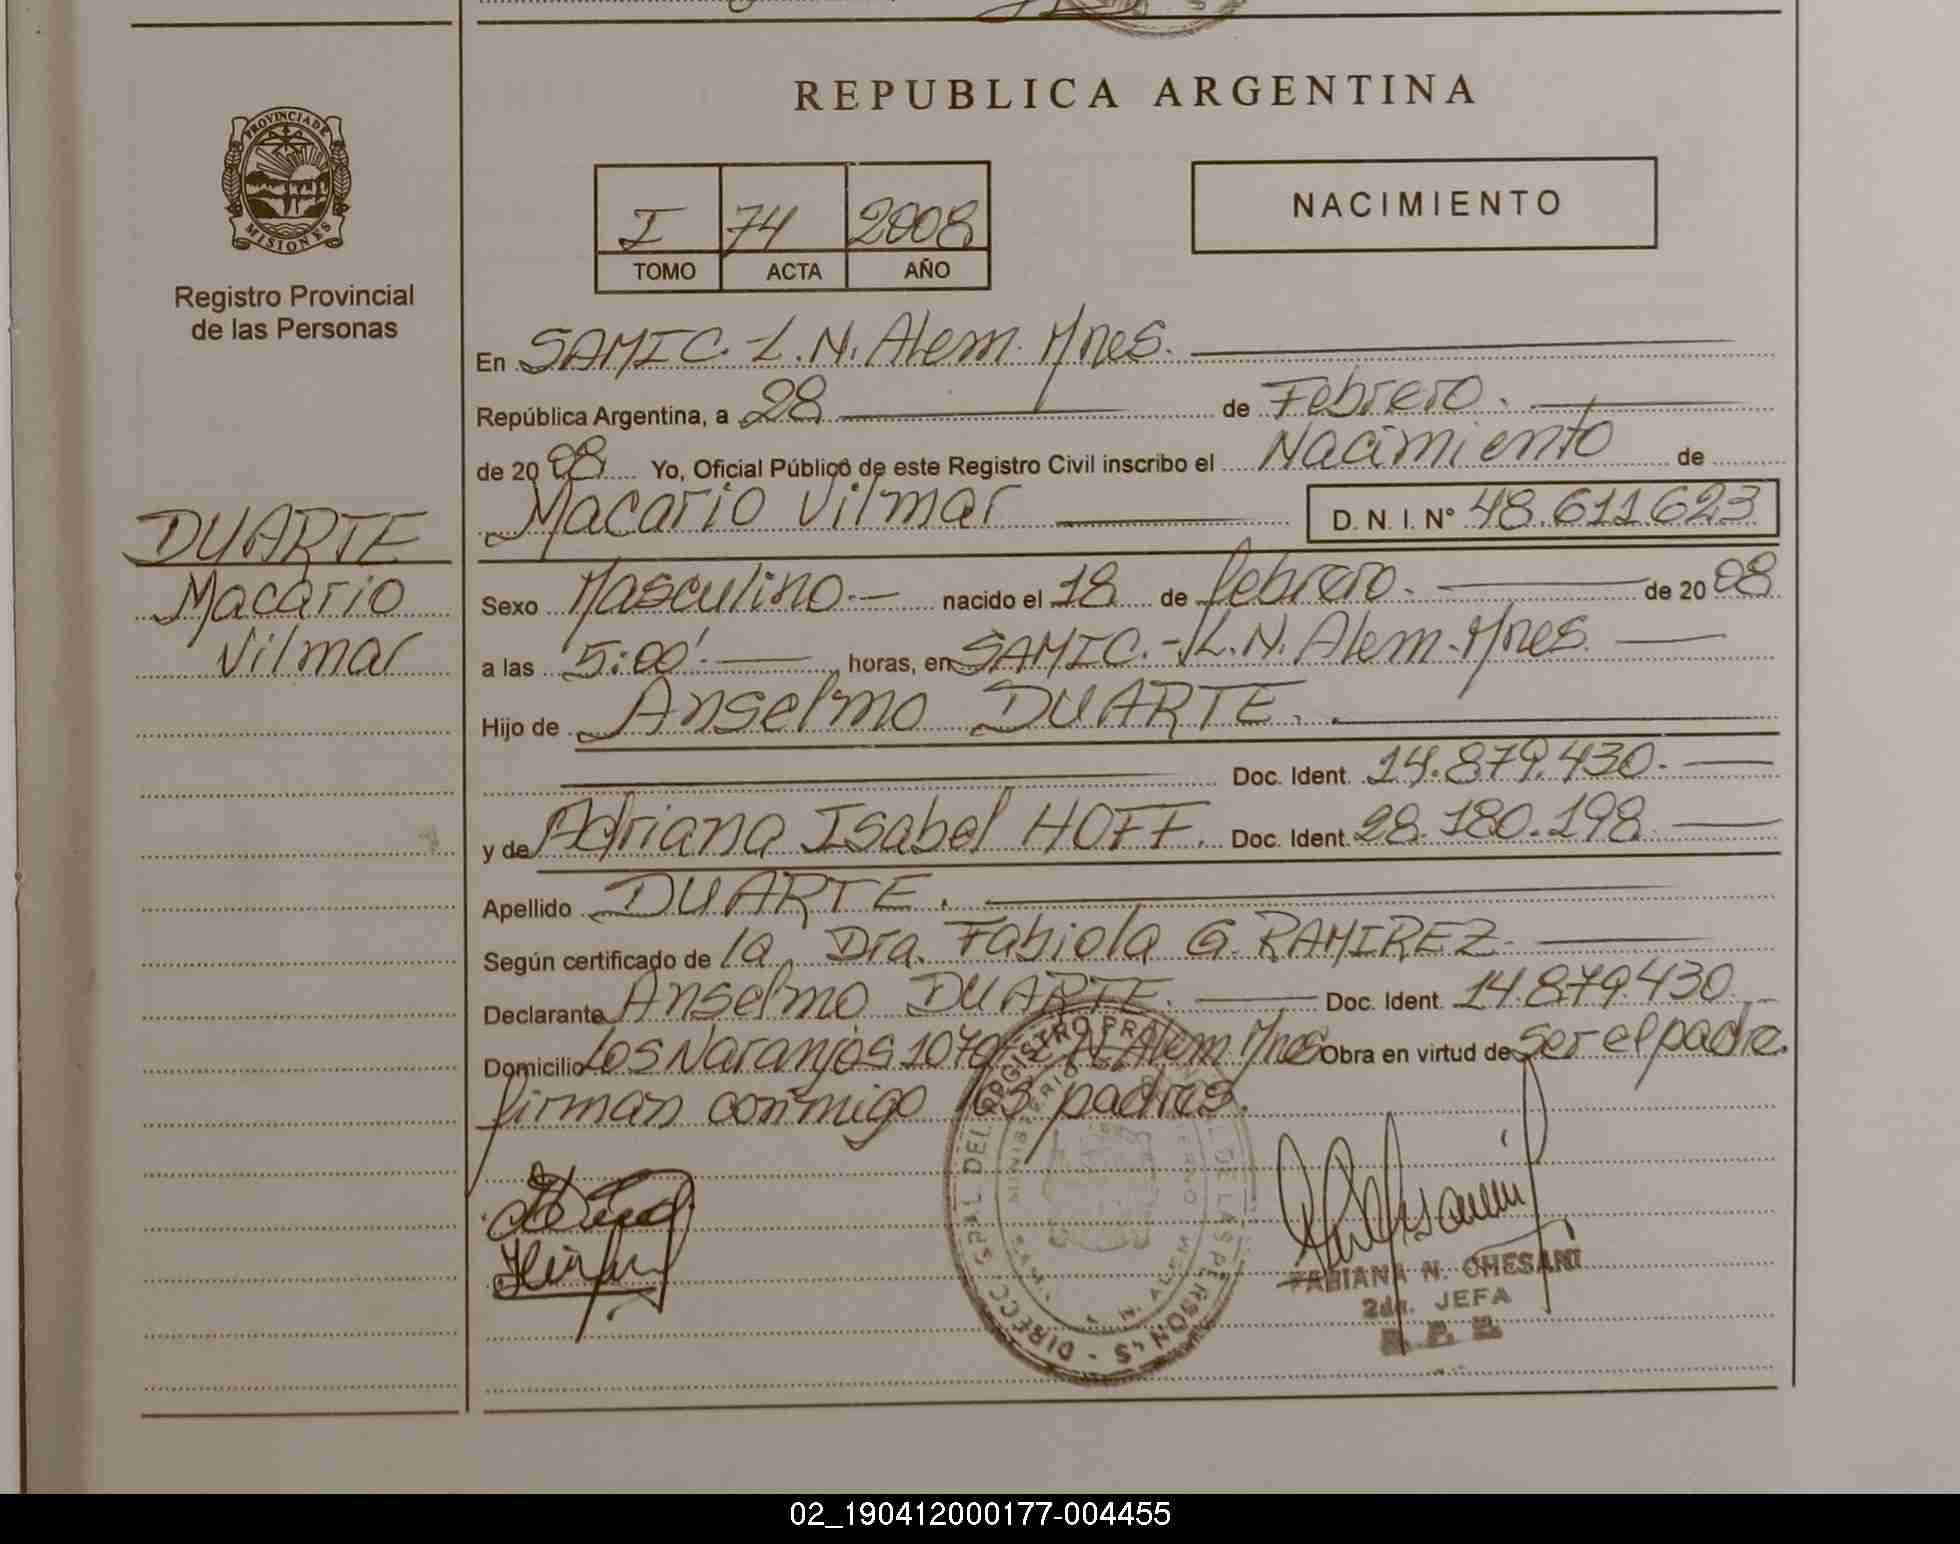 REPUBLICA ARGENTINA
PROVINCIA DE
MISIONES
Registro Provincial
de las Personas
I 74 2008
TOMO ACTA AÑO
NACIMIENTO
En SAMIC. L.N. Alem. Mnes.
República Argentina, a 28 de Febrero.
de 2008 Yo, Oficial Público de este Registro Civil inscribo el Nacimiento de
Macario Vilmar D. N. I. N° 48.611.623
DUARTE
Macario
Vilmar
Sexo Masculino.- nacido el 18 de febrero. de 2008
a las 5:00'. horas, en SAMIC.- L.N. Alem. Mnes.
Hijo de Anselmo DUARTE.
Doc. Ident. 14.879.430.
y de Adriana Isabel HOFF. Doc. Ident. 28.180.198
Apellido DUARTE.
Según certificado de la Dra. Fabiola G. RAMIREZ.
Declarante Anselmo DUARTE. Doc. Ident. 14.879.430
Domicilio Los Naranjos 1070 L N Alem Mnes Obra en virtud de ser el padre.
firman conmigo los padres.
FABIANA N. CHESANI
2da. JEFA
R. P. P.
02_190412000177-004455